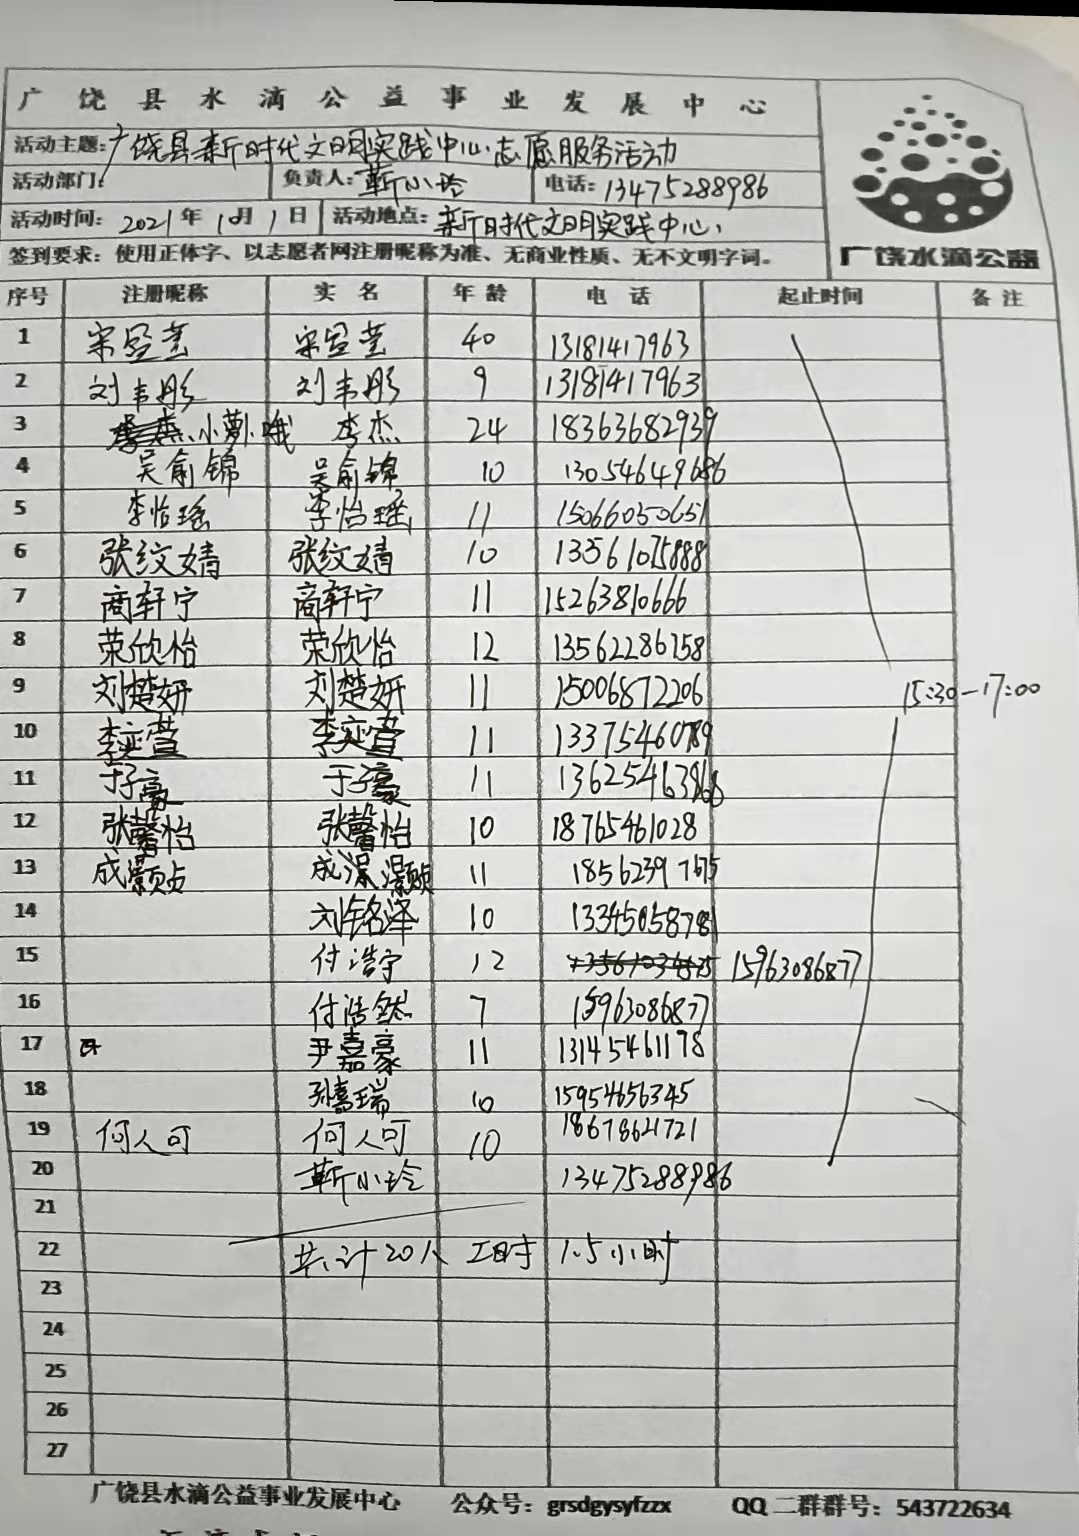 广饶县水滴公益事业发展中心
活动主题:广饶县新时代文明实践中心志愿服务活动
活动部门: 负责人:靳小玲 电话:13475288986
活动时间: 2021年10月1日 活动地点:新时代文明实践中心
签到要求:使用正体字、以志愿者网注册昵称为准、无商业性质、无不文明字词。
广饶水滴公益
序号 注册昵称 实名 年龄 电话 起止时间 备注
1 宋昱芸 宋昱芸 40 13181417963
2 刘韦彤 刘韦彤 9 13181417963
3 小萝哦 李杰 24 18363682939
4 吴俞锦 吴俞锦 10 13054649686
5 李怡瑶 李怡瑶 11 15066050651
6 张纹婧 张纹婧 10 13561075888
7 商轩宁 商轩宁 11 15263810666
8 荣欣怡 荣欣怡 12 13562286758
9 刘楚妍 刘楚妍 11 15006872206 15:30-17:00
10 李奕萱 李奕萱 11 13375460789
11 于子豪 于子豪 11 13625463868
12 张馨怡 张馨怡 10 18765461028
13 成灏贞 成灏贞 11 18562397675
14 刘铭泽 10 13345058781
15 付浩宇 12 15963086877
16 付浩然 7 15963086877
17 尹嘉豪 11 13145461178
18 孙嘉瑞 10 15954656345
19 何人可 何人可 10 18678621721
20 靳小玲 13475288986
21
22 共计20人 工时 1.5小时
23
24
25
26
27
广饶县水滴公益事业发展中心 公众号:grsdgysyfzzx QQ二群群号:543722634